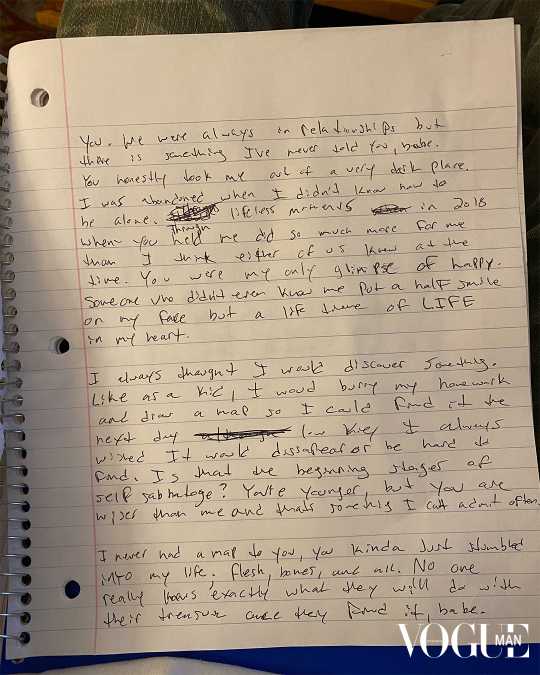 You. We were always in relationships but
there is something I've never told you, babe.
You honestly took me out of a very dark place.
I was abandoned when I didn't know how to
be alone. through lifeless moments in 2018
when you held me did so much more for me
than I think either of us knew at the
time. You were my only glimpse of happy.
Someone who didn't even know me put a half smile
on my face but a life time of LIFE
in my heart.
I always thought I would discover something.
Like as a kid, I would burry my homework
and draw a map so I could find it the
next day low key I always
wished it would dissapear or be hard to
find. Is that the beginning stages of
self sabbotage? You're younger, but you are
wiser than me and thats something I can't admit often.
I never had a map to you, you kinda just stumbled
into my life. flesh, bones, and all. No one
really knows exactly what they will do with
their treasure once they find it, babe.
VOGUE MAN